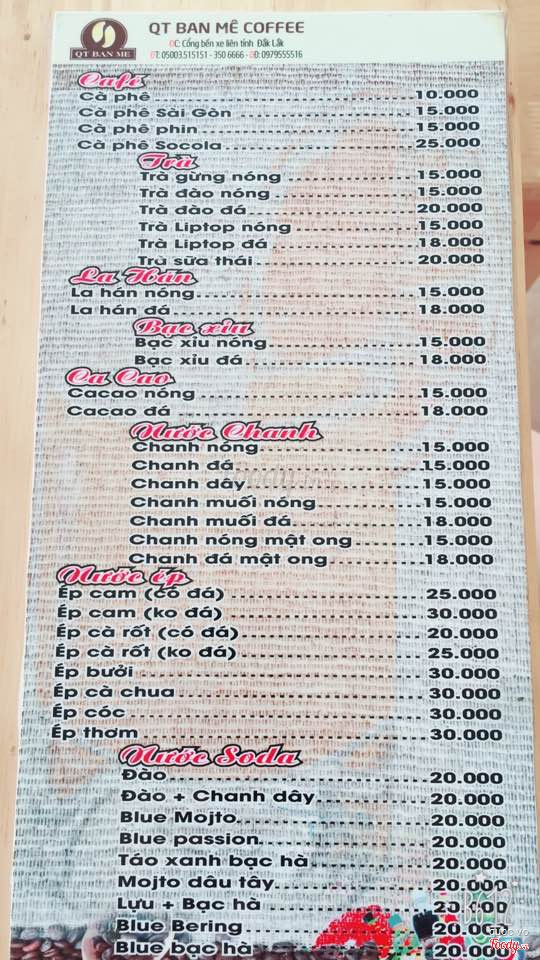 QT BAN MÊ
QT BAN MÊ COFFEE
ĐC: Cổng bến xe liên tỉnh Đắk Lắk
ĐT: 05003.515151 - 350 6666 - DĐ: 0979555516
Café
Cà phê 10.000
Cà phê Sài Gòn 15.000
Cà phê phin 15.000
Cà phê Socola 25.000
Trà
Trà gừng nóng 15.000
Trà đào nóng 15.000
Trà đào đá 20.000
Trà Liptop nóng 15.000
Trà Liptop đá 18.000
Trù sữa thái 20.000
La Hán
La hán nóng 15.000
La hán đá 18.000
Bạc xỉu
Bạc xỉu nóng 15.000
Bạc xỉu đá 18.000
Ca Cao
Cacao nóng 15.000
Cacao đá 18.000
Nước Chanh
Chanh nóng 15.000
Chanh đá 15.000
Chanh dây 15.000
Chanh muối nóng 15.000
Chanh muối đá 18.000
Chanh nóng mật ong 15.000
Chanh đá mật ong 18.000
Nước ép
Ép cam (có đá) 25.000
Ép cam (ko đá) 30.000
Ép cà rốt (có đá) 20.000
Ép cà rốt (ko đá) 25.000
Ép bưởi 30.000
Ép cà chua 30.000
Ép cóc 30.000
Ép thơm 30.000
Nước Soda
Đào 20.000
Đào + Chanh dây 20.000
Blue Mojto 20.000
Blue passion 20.000
Táo xanh bạc hà 20.000
Mojto dâu tây 20.000
Lựu + Bạc hà 20.000
Blue Bering 20.000
Blue bạc hà 20.000
Foody.vn